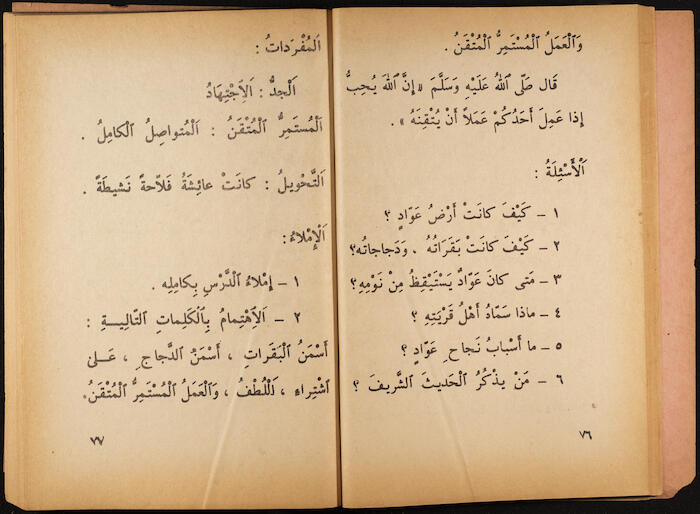 وَٱلْعَمَلُ ٱلْمُسْتَمِرُّ ٱلْمُتْقَنُ .
قَال صَلّى ٱللهُ عَلَيْهِ وَسَلَّمَ « إِنَّ ٱللهَ يُحِبُّ
إِذا عَمِلَ أَحَدُكُمْ عَمَلاً أَنْ يُتْقِنَهُ » .
اَلْأَسْئِلَةُ :
١ – كَيْفَ كانَتْ أَرْضُ عَوّادٍ ؟
٢ – كَيْفَ كانَتْ بَقَرَاتُهُ ، وَدَجاجاتُه؟
٣ – مَتى كانَ عَوّادٌ يَسْتَيْقِظُ مِنْ نَوْمِهِ؟
٤ – ماذا سَمّاهُ أَهْلُ قَرْيَتِهِ ؟
٥ – ما أَسْبابُ نَجاحِ عَوّادٍ ؟
٦ – مَنْ يذْكُرُ ٱلْحَديثَ ٱلشَّريفَ ؟
٧٦
اَلْمُفْرَداتُ :
اَلْجِدُّ : اَلِاجْتِهادُ
اَلْمُستَمِرُّ ٱلْمُتْقَنُ : اَلْمُتَواصِلُ ٱلْكامِلُ .
اَلتَّحْويلُ : كانَتْ عائِشَةُ فَلّاحةً نَشيطَةً .
اَلْإِمْلاءُ:
١ – إِمْلاءُ ٱلدَّرْسِ بِكامِلِه .
٢ – اَلِاهْتِمامُ بِٱلْكَلِماتِ ٱلتّالِيةِ :
أَسْمَنُ ٱلْبَقَراتِ ، أَسْمَنُ ٱلدَّجاجِ ، عَلى
اشْتِراءِ ، اَللُّطْفُ ، وَٱلْعَمَلُ ٱلْمُسْتَمِرُّ ٱلْمُتْقَنُ.
٧٧